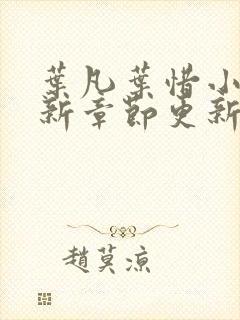 葉凡葉惜小
新章節更新
趙莫涼